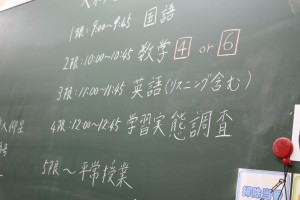 1限:9:00~9:45 国語
2限:10:00~10:45 数学 4 or 6
3限:11:00~11:45 英語(リスニング含む)
4限:12:00~12:45 学習実態調査
5限~平常授業